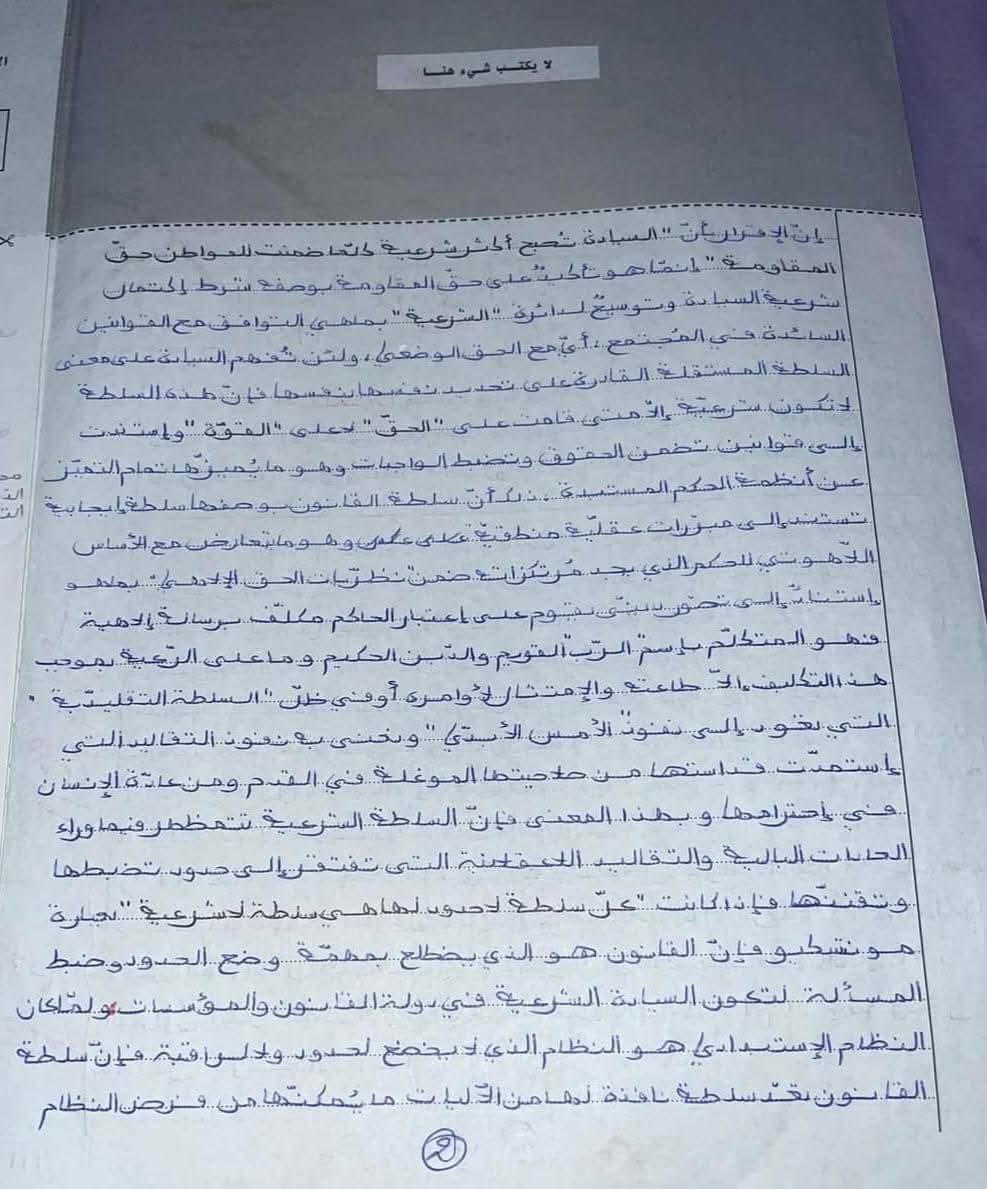 لا يكتب شيء هنا
إنّ الإقرار بأنّ "السيادة تُصبح أكثر شرعية كلّما ضمنت للمواطن حقّ
المقاومة" إنّما هو تأكيدٌ على حقّ المقاومة بوصفه شرط إكتمال
شرعية السيادة وتوسيعٌ لدائرة "الشرعية" بما هي التوافق مع القوانين
السائدة في المُجتمع، أيّ مع الحق الوضعي، ولئن تُفهم السيادة على معنى
السلطة المستقلة القادرة على تحديد نفسها بنفسها فإنّ هذه السلطة
لا تكون شرعيّة إلاّ متى قامت على "الحقّ" لا على "القوّة" وإستندت
إلى قوانين تضمن الحقوق وتضبط الواجبات وهو ما يُميّزها تمام التميّز
عن أنظمة الحكم المستبدة. ذلك أنّ سلطة القانون بوصفها سلطة إيجابية
تستند إلى مبرّرات عقليّة منطقيّة وهو ما يتعارض مع الأساس
اللاّهوتي للحكم الذي يجد مُرتكزاته ضمن "نظريّات الحق الإلاهي" بما هو
إستنادٌ إلى تصوّر دينيّ يقوم على إعتبار الحاكم مكلّف برسالة إلاهية
فهو المتكلّم بإسم الرّبّ القويم والدّين الحكيم وما على الرّعية بموجب
هذا التكليف إلاّ طاعته والإمتثال لأوامره أو في ظلّ "السلطة التقليديّة"
التي تعود إلى نفوذ "الأمس الأبديّ" ونعني به نفوذ التقاليد التي
إستمدّت قداستها من صلاحيتها الموغلة في القدم ومن عادة الإنسان
في إحترامها وبهذا المعنى فإنّ السلطة الشرعية تتمظهر فيما وراء
العادات البالية والتقاليد اللاعقلانية التي تفتقر إلى حدود تضبطها
وتقننّها فإذا كانت "كلّ سلطة لا حدود لها هي سلطة لا شرعية" بعبارة
مونتسكيو فإنّ القانون هو الذي يضطلع بمهمّة وضع الحدود وضبط
المسألة لتكون السيادة الشرعية في دولة القانون والمؤسسات ولمّا كان
النظام الإستبدادي هو النظام الذي لا يخضع لحدود ولا لمراقبة فإنّ سلطة
القانون تعدّ سلطة نافذة لها من الآليات ما يُمكنّها من فرض النظام
2